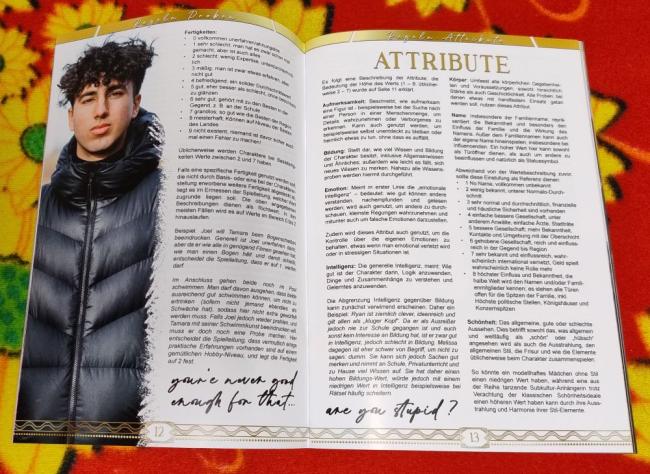 Regeln Proben
Fertigkeiten:
• 0 vollkommen unerfahren/ahnungslos
• 1 sehr schlecht, man hat es zwar
gemacht, aber ist auch alles
• 2 schlecht, wenig Expertise, unterdurchschnitt-
lich
• 3 mäßig, man ist zwar etwas erfahren, aber
nicht gut
• 4 befriedigend, ein solider Durchschnitt
• 5 gut, eher besser als schlecht, ohne besonders
zu glänzen
• 6 sehr gut, gehört mit zu den Besten in der
Gegend, z. B. an der Schule
• 7 grandios, so gut wie die Besten der Region
• 8 meisterhaft, Können auf Niveau der
des Landes
• 9 nicht existent, niemand ist davor sicher auch
mal einen Fehler zu machen!
Üblicherweise werden Charaktere bei Fertig-
keiten Werte zwischen 2 und 7 haben.
Falls eine spezifische Fertigkeit genutzt werden soll,
die nicht durch Basis- oder eine bei der Charakterer-
stellung erworbene weitere Fertigkeit abgedeckt ist,
liegt es im Ermessen der Spielleitung, welcher Wert
zugrunde liegen soll. Die oben angegebenen
Beschreibungen dienen als Richtwert. In den
meisten Fällen wird es auf Werte im Bereich
hinauslaufen.
Beispiel: Joel will Tamara beim Bogenschießen
beeindrucken. Generell ist Joel unerfahren darin,
aber da er wie alle in genügend Filmen gesehen hat,
wie man einen Bogen hält und damit schießt,
entscheidet die Spielleitung, dass er auf 1 werfen
darf.
Im Anschluss gehen beide noch im Pool
schwimmen. Man darf davon ausgehen, dass beide
ausreichend gut schwimmen können, um nicht zu
ertrinken (sofern nicht jemand ebendies als
Schwäche hat), sodass hier nicht extra geworfen
werden muss. Falls Joel jedoch wieder probiert, und
Tamara mit seiner Schwimmkunst beeindrucken will,
muss er doch noch eine Probe machen. Hier
entscheidet die Spielleitung, dass vermutlich einige
praktische Erfahrungen vorhanden sind auf einem
gemäßigten Hobby-Niveau, und legt die Fertigkeit
auf 2 fest.
you're never good
enough for that...
12
Regeln Attribute
ATTRIBUTE
Es folgt eine Beschreibung der Attribute, die
Bedeutung der Höhe des Werts (1 – 9, üblicher-
weise 3 – 7) wurde auf Seite 11 erklärt.
Aufmerksamkeit: Bestimmt, wie aufmerksam
eine Figur ist - beispielsweise bei der Suche nach
einer Person in einer Menschenmenge, um
Details wahrzunehmen oder Verborgenes zu
erkennen. Kann auch genutzt werden, um
beispielsweise selbst unentdeckt zu bleiben oder
heimlich etwas zu tun, ohne dass es auffällt.
Bildung: Stellt dar, wie viel Wissen und Bildung
der Charakter besitzt, inklusive Allgemeinwissen
und Ähnliches; außerdem wie leicht es fällt, sich
neues Wissen zu merken. Nahezu alle Wissens-
proben werden hiermit durchgeführt.
Emotion: Meint in erster Linie die „emotionale
Intelligenz“ – bedeutet, wie gut können andere
verstanden, nachempfunden und gelesen
werden; wird auch genutzt, um andere zu durch-
schauen, kleinste Regungen wahrzunehmen und
mitunter auch um falsche Emotionen darzustellen.
Zudem wird dieses Attribut auch genutzt, um die
Kontrolle über die eigenen Emotionen zu
behalten, etwas wenn man emotional verletzt wird
oder in stressigen Situationen ist.
Intelligenz: Die generelle Intelligenz, meint: Wie
gut ist der Charakter darin, Logik anzuwenden,
Dinge und Zusammenhänge zu verstehen und
Gelerntes anzuwenden.
Die Abgrenzung Intelligenz gegenüber Bildung
kann zunächst verwirrend erscheinen. Daher ein
Beispiel: Ryan ist ziemlich clever, ideenreich und
gilt allen als „kluger Kopf“. Da er als Ausreißer
jedoch nie zur Schule gegangen ist und auch
sonst kein Interesse an Bildung hat, ist er zwar gut
in Intelligenz, jedoch schlecht in Bildung. Melissa
dagegen ist eher schwer von Begriff, um nicht zu
sagen: dumm. Sie kann sich jedoch Sachen gut
merken und nimmt an Schule, Privatunterricht und
zu Hause viel Wissen auf. Sie hat daher einen
hohen Bildungs-Wert, würde jedoch mit einem
niedrigen Wert in Intelligenz beispielsweise bei
Rätsel häufig scheitern.
are you stupid ?
Körper: Umfasst alle körperlichen Gegebenhei-
ten und Voraussetzungen, sowohl hinsichtlich
Stärke als auch Geschicklichkeit. Alle Proben, bei
denen etwas mit handfestem Einsatz getan
werden soll, nutzen dieses Attribut.
Name: insbesondere der Familienname, reprä-
sentiert die Bekanntheit und besonders den
Einfluss der Familie und die Wirkung des
Namens. Außer dem Familiennamen kann auch
der eigene Name hineinspielen, insbesondere bei
Influencenden. Ein hoher Wert hier kann sowohl
als Türöffner dienen, als auch um andere zu
beeinflussen und natürlich als Statussymbol.
Abweichend von der Wertebeschreibung zuvor,
sollte diese Einstufung als Referenz dienen:
• 1 No Name, vollkommen unbekannt
• 2 wenig bekannt, unterer Normalo-Durch-
schnitt
• 3 sehr normal und durchschnittlich, finanzielle
und häusliche Sicherheit sind vorhanden
• 4 einfache bessere Gesellschaft, unter
anderem Anwälte, einfache Ärzte, Stadträte
• 5 bessere Gesellschaft; mehr Bekanntheit,
Kontakte und Umgebung mit der Oberschicht
• 6 gehobene Gesellschaft, reich und einfluss-
reich in der Gegend bis Region
• 7 sehr bekannt und einflussreich, wahr-
scheinlich international vernetzt, Geld spielt
wahrscheinlich keine Rolle mehr
• 8 höchster Einfluss und Bekanntheit, die
halbe Welt wird den Namen und/oder Famili-
enmitglieder kennen, es stehen alle Türen
offen für die Spitzen der Familie, inkl.
höchste politische Stellen, Königshäuser und
Konzernspitzen
Schönheit: Das allgemeine, gute oder schlechte
Aussehen. Dies betrifft sowohl das, was allgemein
und weitläufig als „schön“ oder „hübsch“
angesehen wird als auch die Ausstrahlung, den
allgemeinen Stil, die Frisur und wie die Elemente
üblicherweise beim Charakter zusammenspielen.
So könnte ein modelhaftes Mädchen ohne Stil
einen niedrigen Wert haben, während eine aus
der Reihe tanzende Subkultur-Anhängerin trotz
Verachtung der klassischen Schönheitsideale
einen höheren Wert haben kann durch ihre Aus-
strahlung und Harmonie ihrer Stil-Elemente.
13